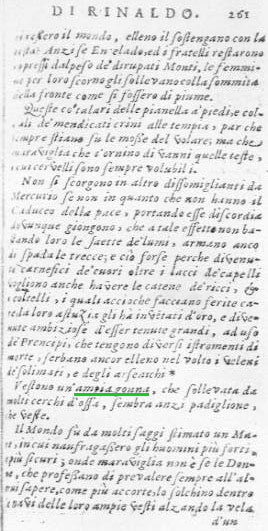 DI RINALDO. 261
il mondo, elleno il sostengano con la
testa. Anzi se Encelado, ed i fratelli restarono
oppressi dal peso de' dirupati Monti, le femmi-
ne per loro scorno gli sollevano alla sommità
della fronte come si fossero di piume.
Queste co' talari delle pianella a' piedi, e col-
de' mendicati crini alle tempia, par che
sempre stiano su le mosse del volare; ma che
maraviglia che s'ornino di vanni quelle teste,
i cui cervelli sono sempre volubili.
Non si scorgono in altro dissomiglianti da
Mercurio se non in quanto che non hanno il
Caduceo della pace, portando esse discordia
dovunque giongono, che a tale effetto non ba-
stando loro le saette de' lumi, armano anco
di spada le trecce; e ciò forse perche divenu-
te carnefici de' cuori oltre i lacci de' capelli
vogliono anche havere le catene de' ricci, &
i coltelli, i quali acciò che facciano ferite ca-
da loro astuzia gli hà invetati d'oro, e dive-
nute ambiziose d'esser tenute grandi, ad uso
di Prencipi, che tengono diversi istromenti di
morte, serbano ancor elleno nel volto i veleni
de' solimati, e degli arsenichi*
Vestono un'ampia gonna, che sollevata da
molti cerchi d'ossa, sembra anzi padiglione,
che veste.
Il Mondo fù da molti saggi stimato un Ma-
re, in cui naufragassero gli huomini più forti,
più sicuri; onde maraviglia non è se le Don-
ne, che professano di prevalere sempre all'al-
sapere, come più accorte, lo solchino dentro
navi delle loro ampie vesti alzando la vela
d'un